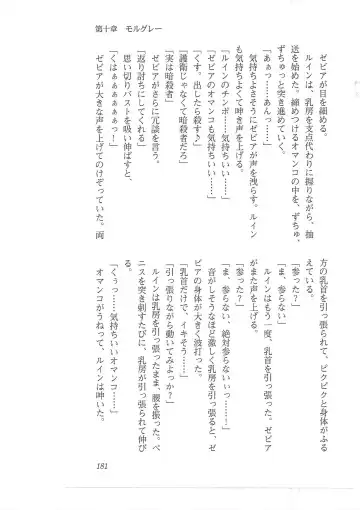 第十章　モルグレー
ゼビアが目を細める。
ルインは、乳房を支点代わりに握りながら、抽
送を始めた。締めつけるオマンコの中を、ずちゅ、
ずちゅっと突き進めていく。
「あぁっ……あんっ……」
気持ちよさそうにゼビアが声を洩らす。ルイン
も気持ちよくて呻き声を上げる。
「ルインのチンポ……気持ちいい……」
「ゼビアのオマンコも気持ちいい……」
「くす。出したら殺す」
「護衛じゃなくて暗殺者だろ」
「実は暗殺者」
ゼビアがさらに冗談を言う。
「返り討ちにしてくれる」
思い切りバストを吸い伸ばすと、
「くはぁぁぁぁぁっー！」
ゼビアが大きな声を上げてのけぞっていた。両
方の乳首を引っ張られて、ビクビクと身体がふる
えている。
「参った？」
「ま、参らない」
ルインはもう一度、乳首を引っ張った。ゼビア
がまた声を上げる。
「参った？」
「ま、参らない、絶対参らないぃっ……！」
音がしそうなほど激しく乳房を引っ張ると、ゼ
ビアの身体が大きく波打った。
「乳首だけで、イキそう……」
「引っ張りながら動いてみよっか？」
ルインは乳房を引っ張ったまま、腰を振った。ペ
ニスを突き刺すたびに、乳房が引っ張られて伸び
る。
「くぅっ……気持ちいいオマンコ……」
オマンコがうねって、ルインは呻いた。
181